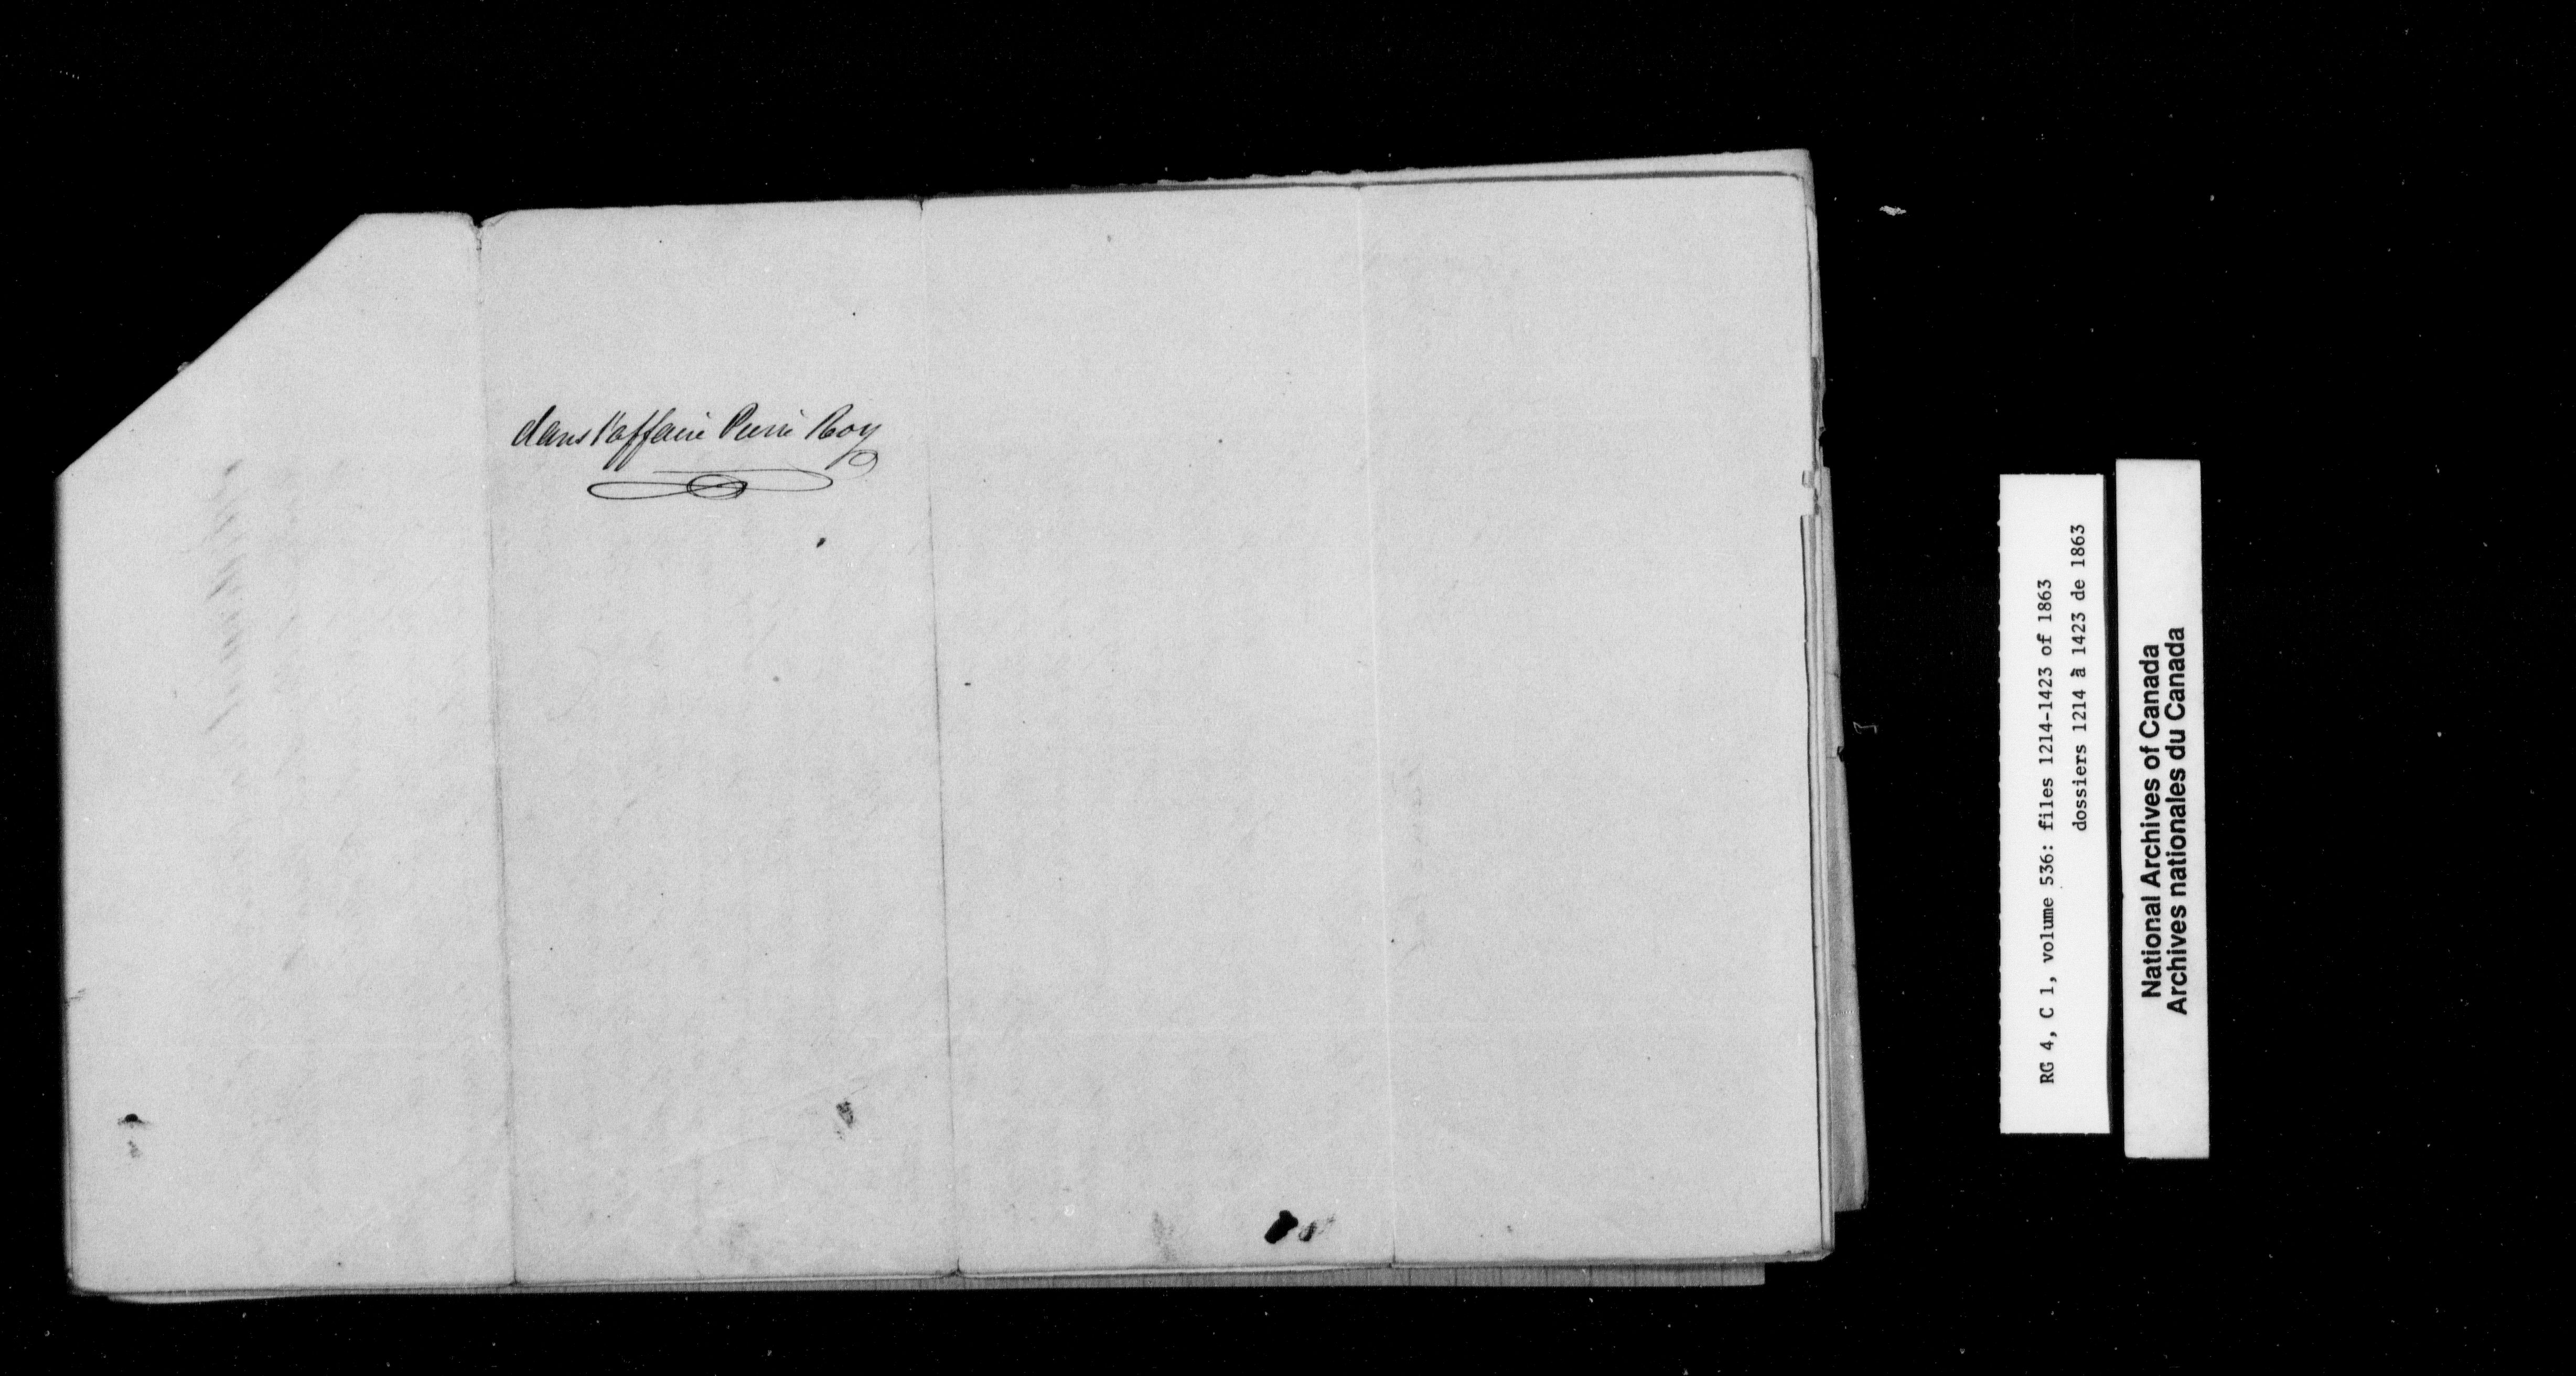 dans l'affaire Pierre Roy
RG 4, C 1, volume 536: files 1214-1423 of 1863
dossiers 1214 à 1423 de 1863
National Archives of Canada
Archives nationales du Canada